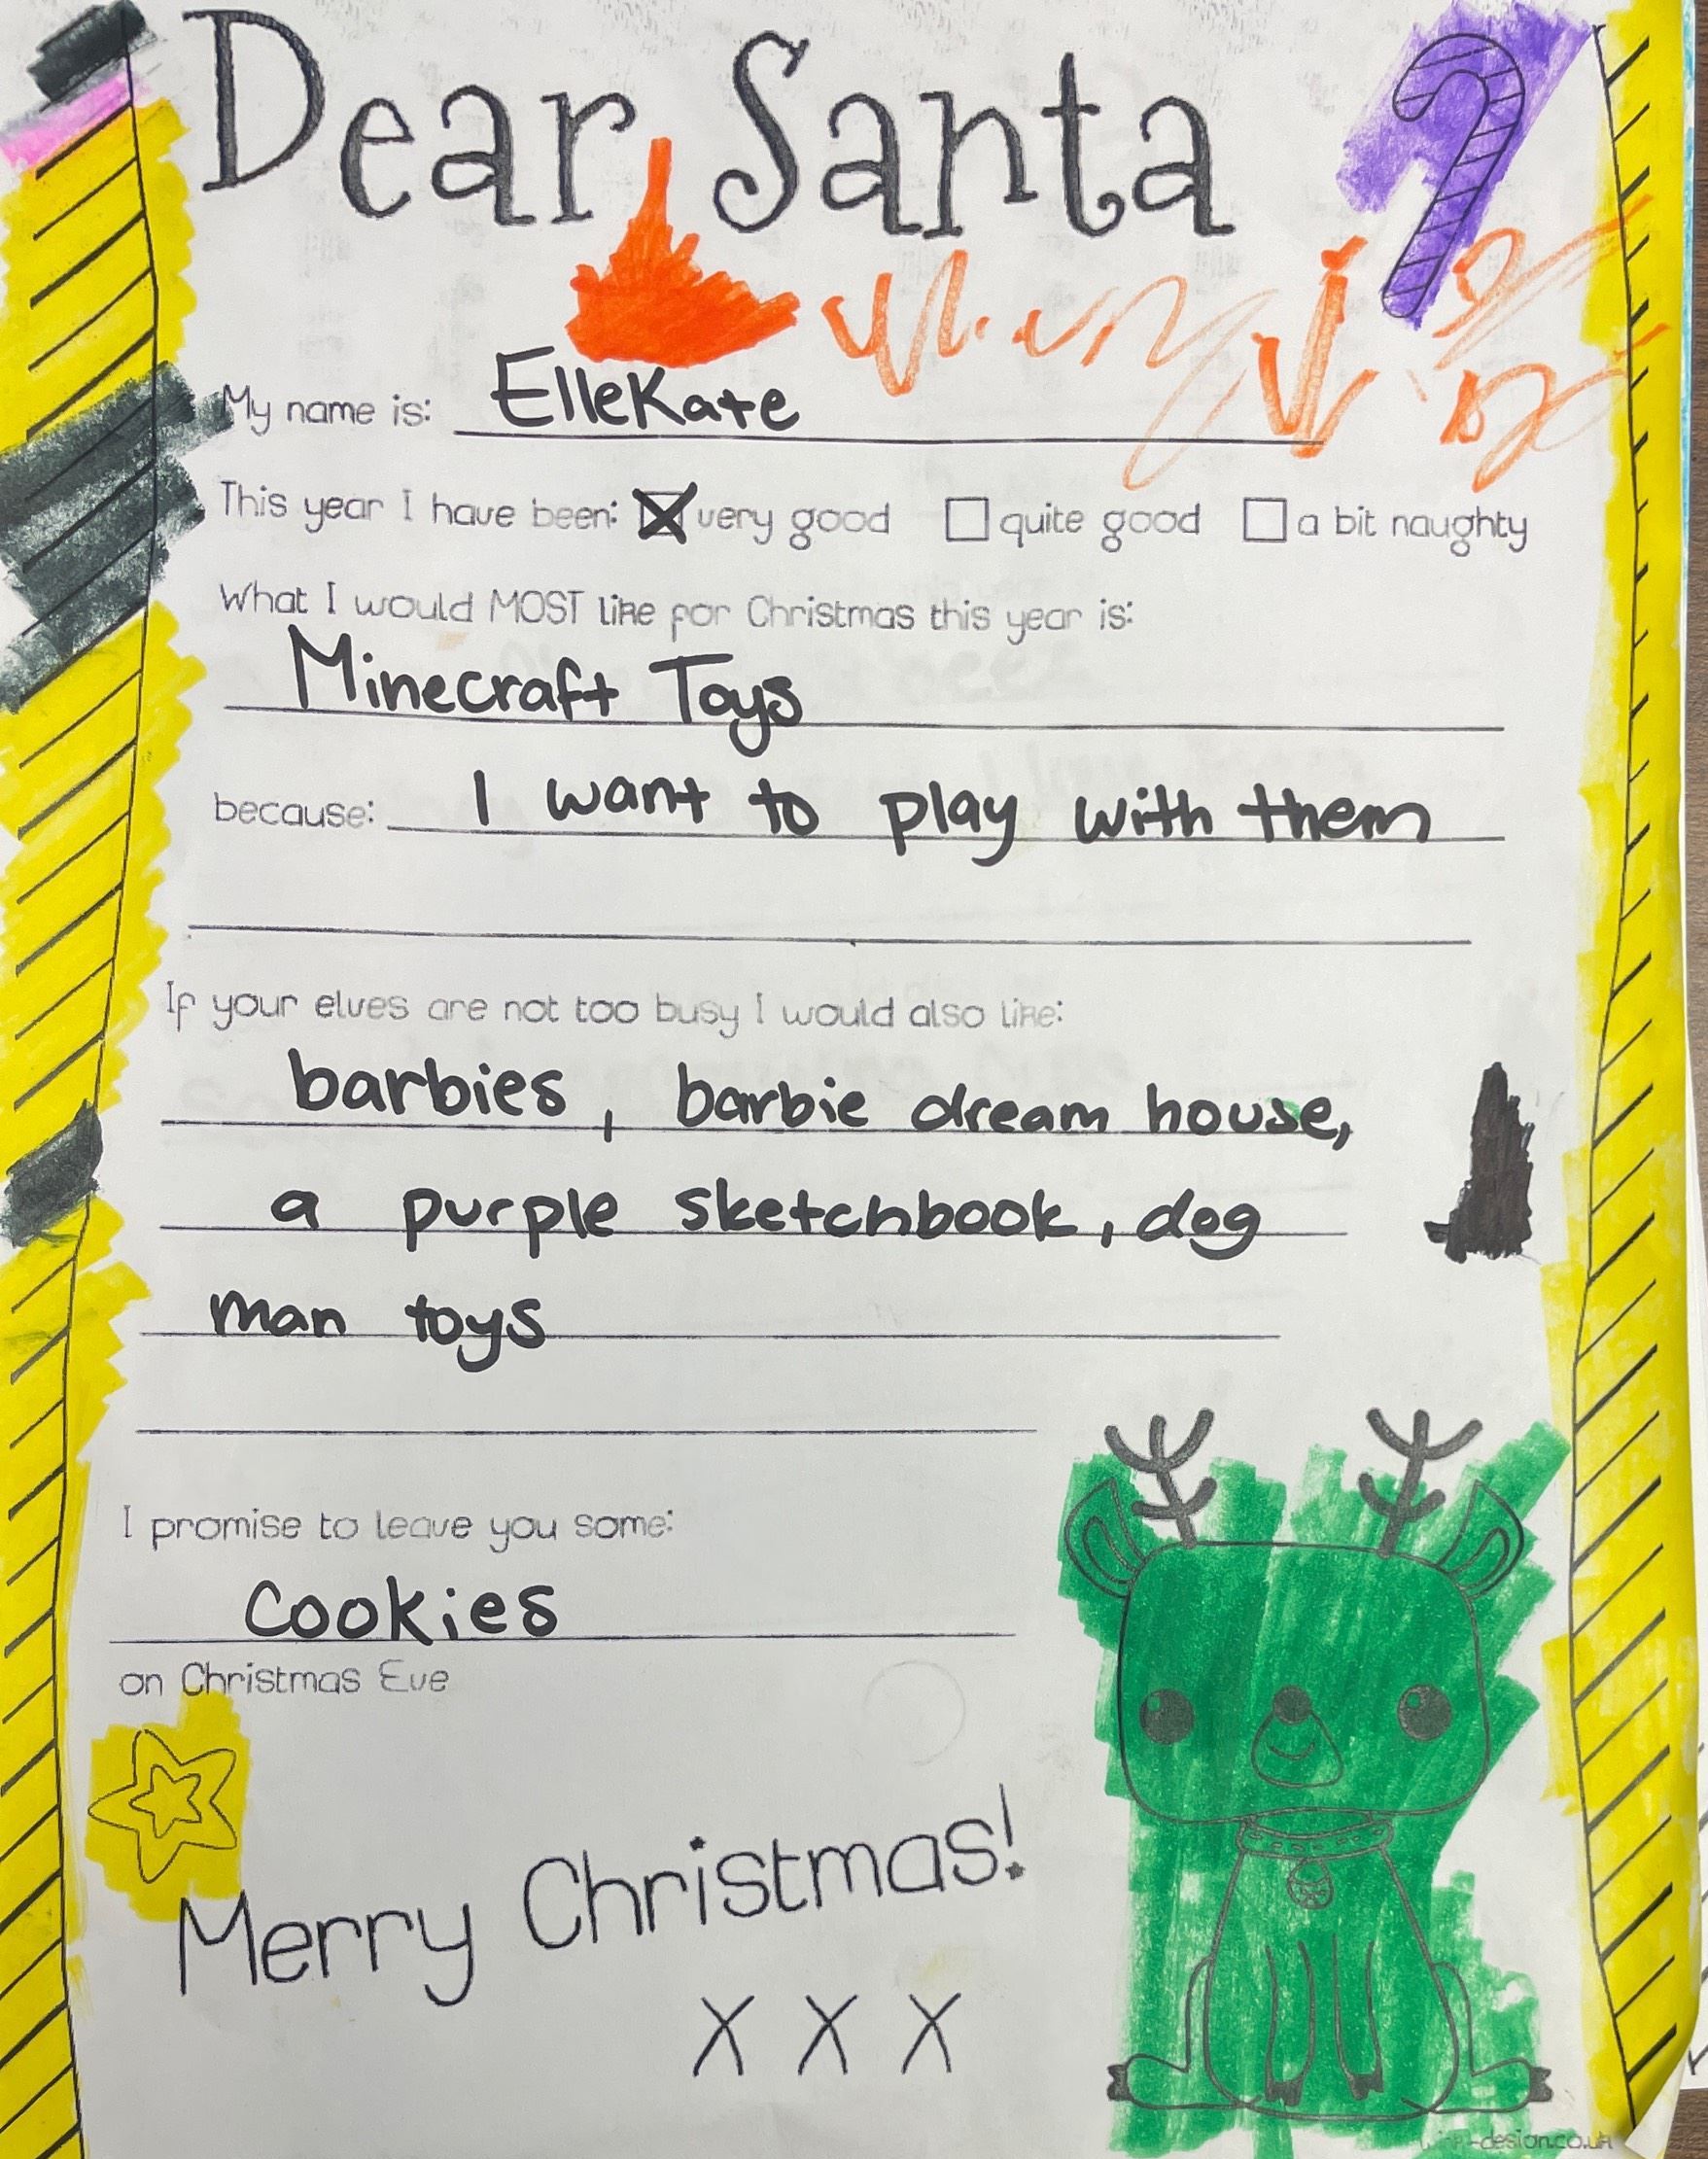 Dear Santa
My name is: ElleKate
This year I have been: very good quite good a bit naughty
What I would MOST like for Christmas this year is:
Minecraft Toys
because: I want to play with them
If your elves are not too busy I would also like:
barbies, barbie dream house,
a purple sketchbook, dog
man toys
I promise to leave you some:
cookies
on Christmas Eve
Merry Christmas!
X X X